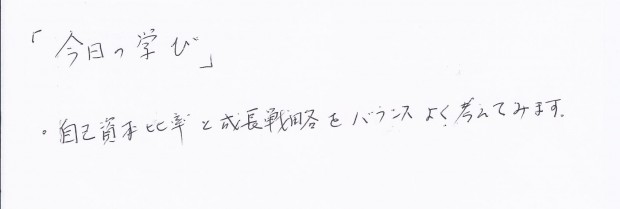 「今日の学び」
・自己資本比率と成長戦略をバランスよく考えてみます.